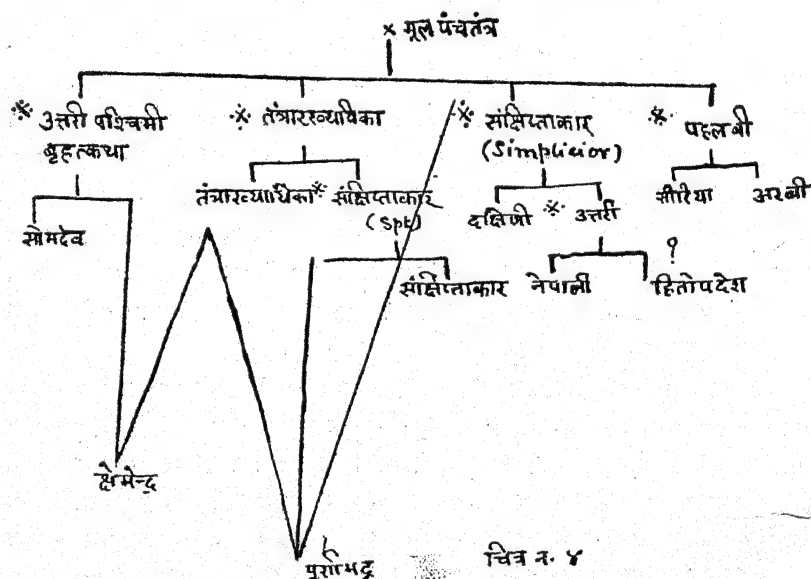 × मूल पंचतंत्र
※ उत्तरी पश्चिमी
बृहत्कथा
※ तंत्राख्यायिका
※ संक्षिप्ताकार
(Simplicior)
※ पहलवी
तंत्राख्यायिका
※ संक्षिप्ताकार
(Spt)
दक्षिणी
※ उत्तरी
सीरिया
अरबी
सोमदेव
संक्षिप्ताकार
नेपाली
?
हितोपदेश
क्षेमेन्द्र
पूर्णभद्र
चित्र न. ४